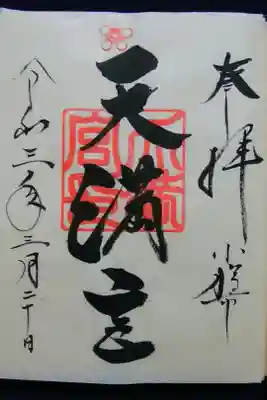 奉拝 小城市
天満宮
令和三年三月二十日